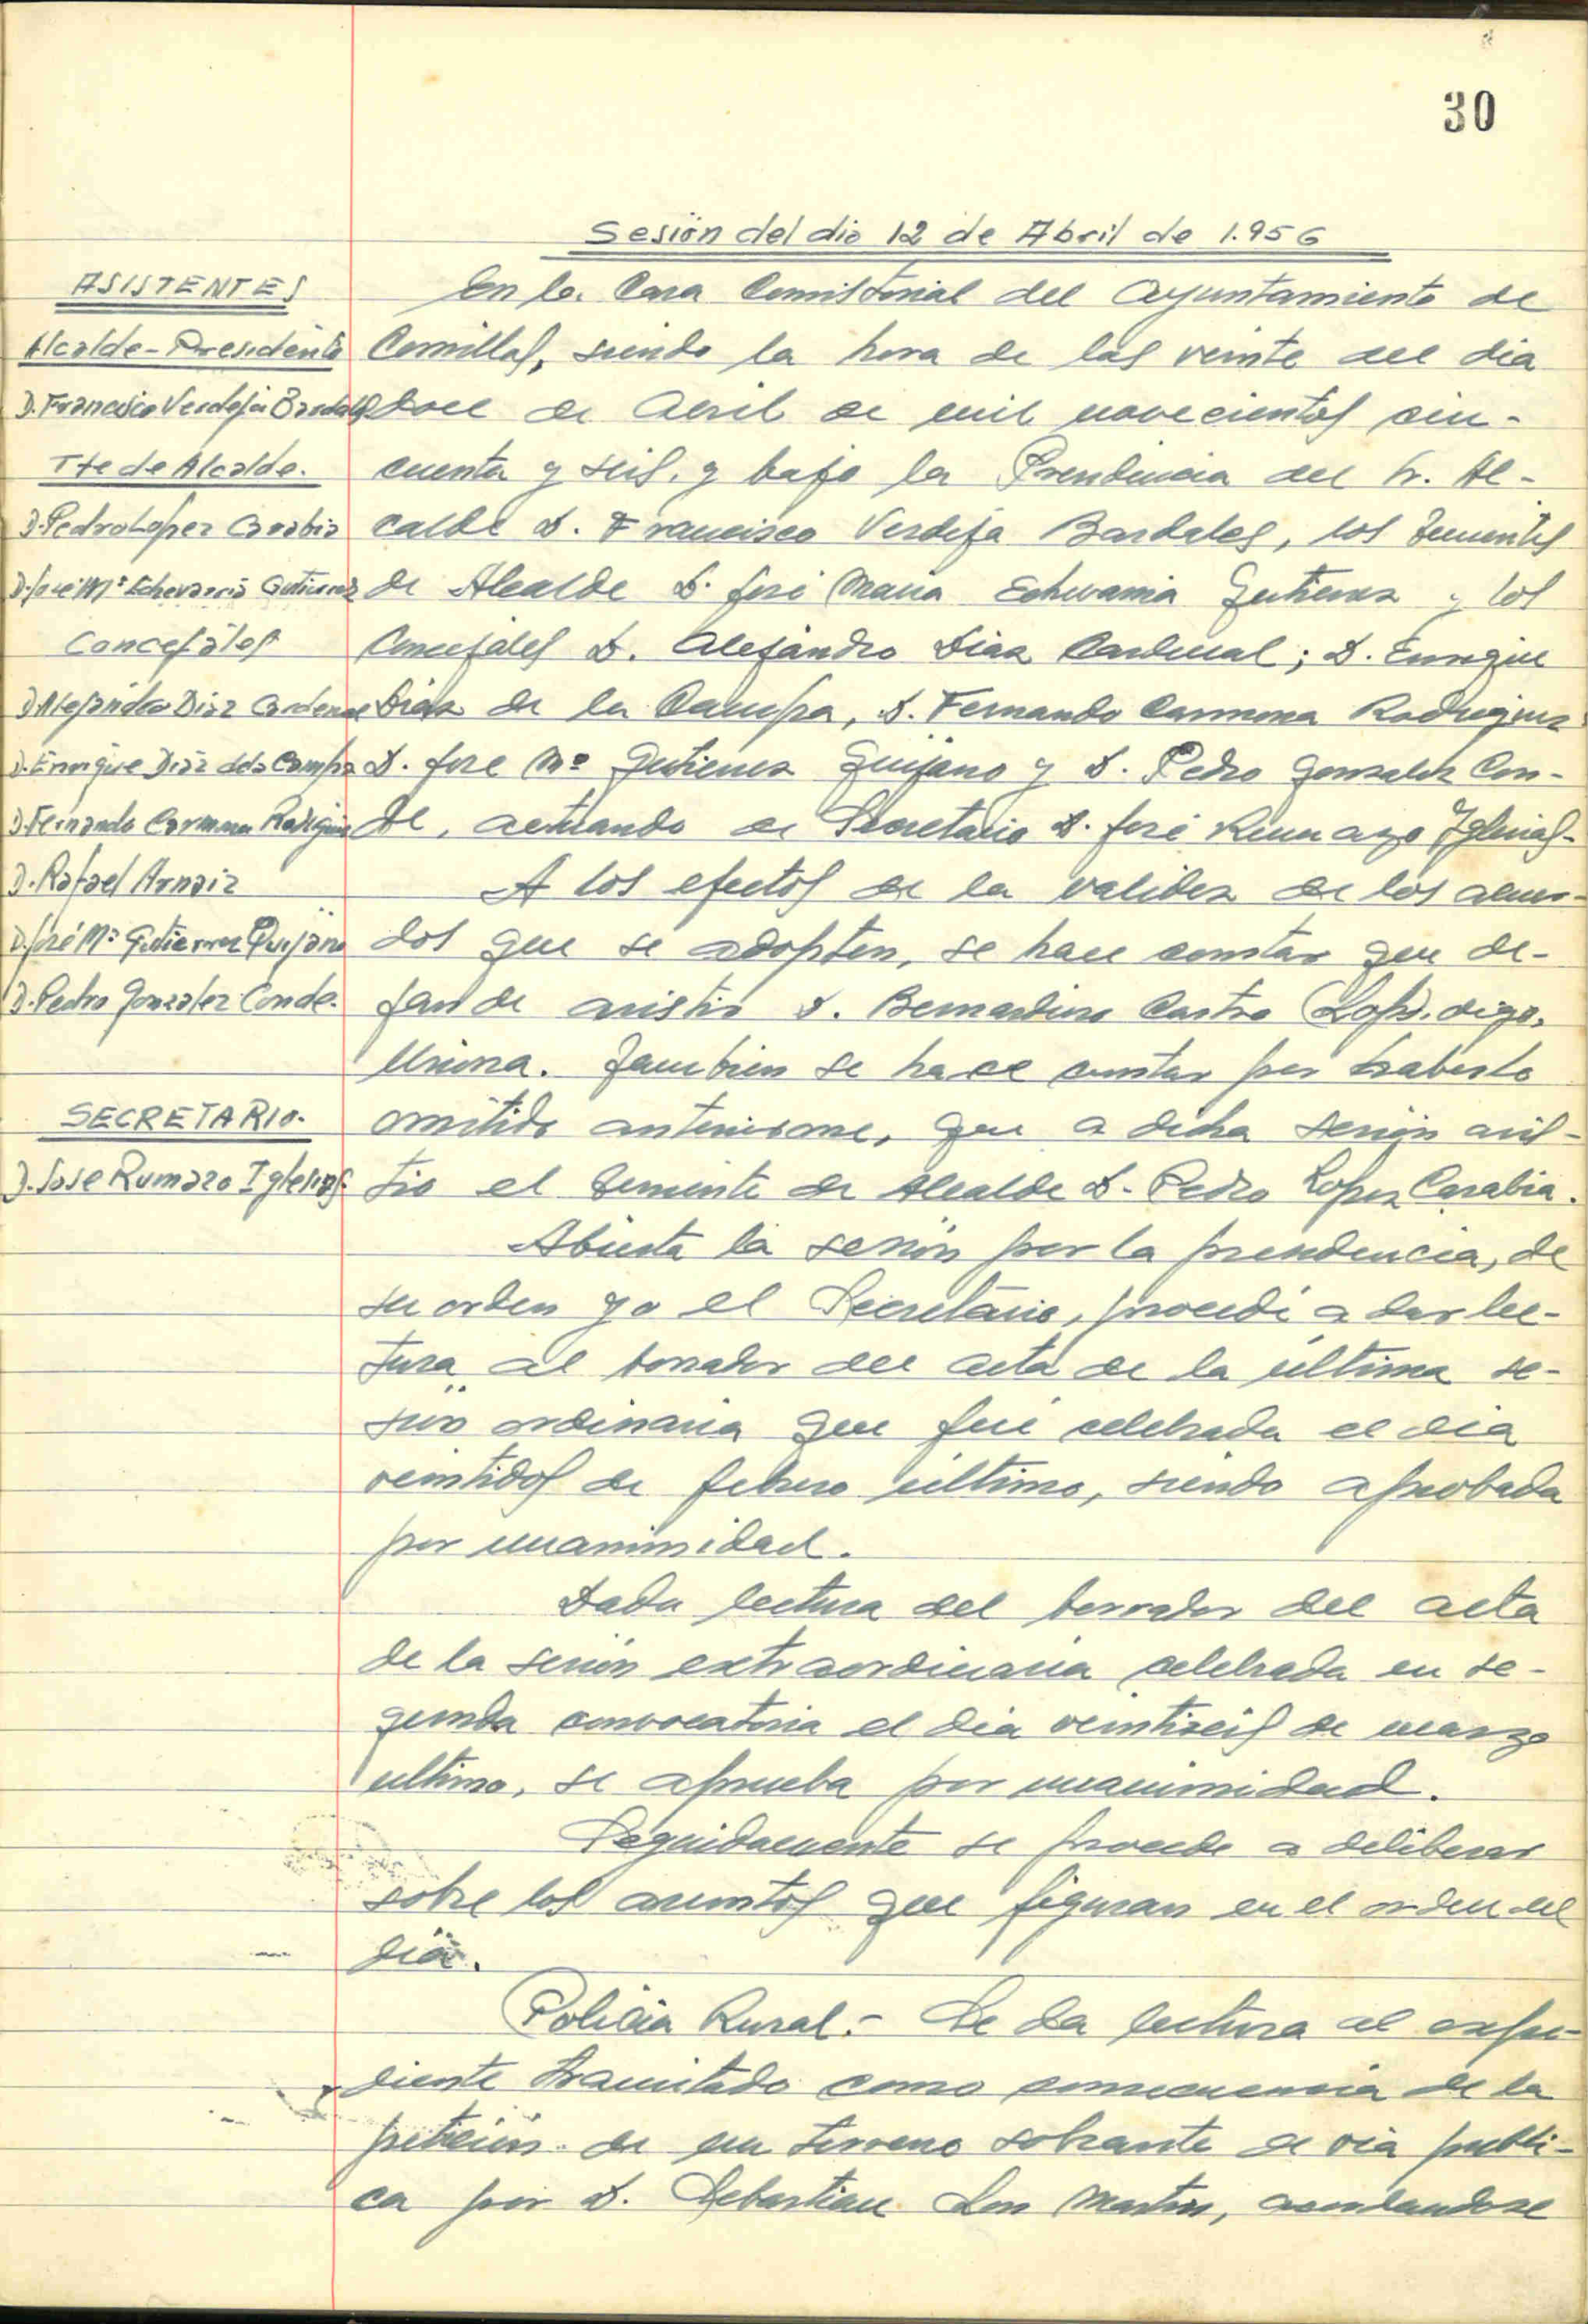 30
Sesión del dia 12 de Abril de 1.956
ASISTENTES
Alcalde-Presidente
D. Francisco Verdeja Bardales
Tte de Alcalde.
D. Pedro Lopez Carabia
D. José Mª Echevarria Gutierrez
Concejales
D. Alejandro Diaz Cardenal
D. Enrique Diaz de la Campa
D. Fernando Carmona Rodriguez
D. Rafael Arnaiz
D. José Mª Gutierrez Quijano
D. Pedro Gonzalez Conde.
SECRETARIO.
D. Jose Rumazo Iglesias
En la Casa Consistorial del Ayuntamiento de
Comillas, siendo la hora de las veinte del dia
doce de Abril de mil novecientos cin-
cuenta y seis, y bajo la Presidencia del Sr. Al-
calde D. Francisco Verdeja Bardales, los Tenientes
de Alcalde D. José Maria Echevarria Gutierrez y los
Concejales D. Alejandro Diaz Cardenal; D. Enrique
Diaz de la Campa, D. Fernando Carmona Rodriguez
D. Jose Mª Gutierrez Quijano y D. Pedro Gonzalez Con-
de, actuando de Secretario D. José Rumazo Iglesias-
A los efectos de la validez de los acuer-
dos que se adopten, se hace constar que de-
jan de asistir D. Bernardino Castro digo,
. Tambien se hace constar por haberlo
omitido , que a dicha sesión asis-
tio el Teniente de Alcalde D. Pedro Lopez Carabia.
Abierta la sesión por la presidencia, de
su orden yo el Secretario, procedi a dar lec-
tura al borrador del acta de la última se-
sión ordinaria que fué celebrada el dia
veintidos de febrero último, siendo aprobada
por unanimidad.
Dada lectura del borrador del acta
de la sesión extraordinaria celebrada en se-
gunda convocatoria el dia veintiseis de marzo
ultimo, se aprueba por unanimidad.
Seguidamente se procede a deliberar
sobre los asuntos que figuran en el orden del
dia.
Policia Rural.- Se da lectura al expe-
diente tramitado como consecuencia de la
petición de un terreno sobrante de via publi-
ca por D. Sebastian , acordandose